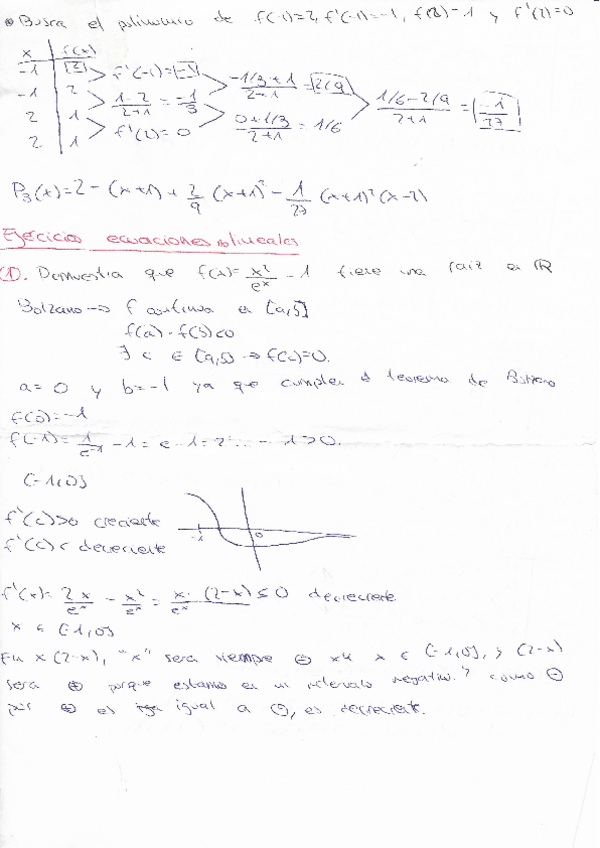 • Busca el polinomio de f(-1)=2, f'(-1)=-1, f(2)=1 y f'(2)=0
x f(x)
-1 2 > f'(-1)=-1 > (-1/3+1)/(2+1) = 2/9
-1 2 > (1-2)/(2+1) = -1/3 > (1/6-2/9)/(2+1) = -1/27
2 1 > f'(2)=0 > (0+1/3)/(2+1) = 1/6
2 1
P3(x)=2-(x+1)+2/9 (x+1)² - 1/27 (x+1)²(x-2)
Ejercicios ecuaciones no lineales
①. Demuestra que f(x)= x²/eˣ - 1 tiene una raiz en ℝ
Bolzano → f continua en [a,b]
f(a)·f(b)<0
∃ c ∈ [a,b] → f(c)=0.
a=0 y b=-1 ya que cumplen el teorema de Bolzano
f(0)=-1
f(-1)= 1/e⁻¹ -1 = e-1 = 2'... - 1 >0.
(-1,0)
f'(c)>0 creciente
-1 0
f'(c)< decreciente
f'(x)= 2x/eˣ - x²/eˣ = x·(2-x)/eˣ ≤ 0 decreciente
x ∈ (-1,0)
En x(2-x), "x" sera siempre ⊖ x ∈ (-1,0), y (2-x)
sera ⊕ porque estamos en un intervalo negativo. Y como ⊖
por ⊕ es igual a ⊖, es decreciente.